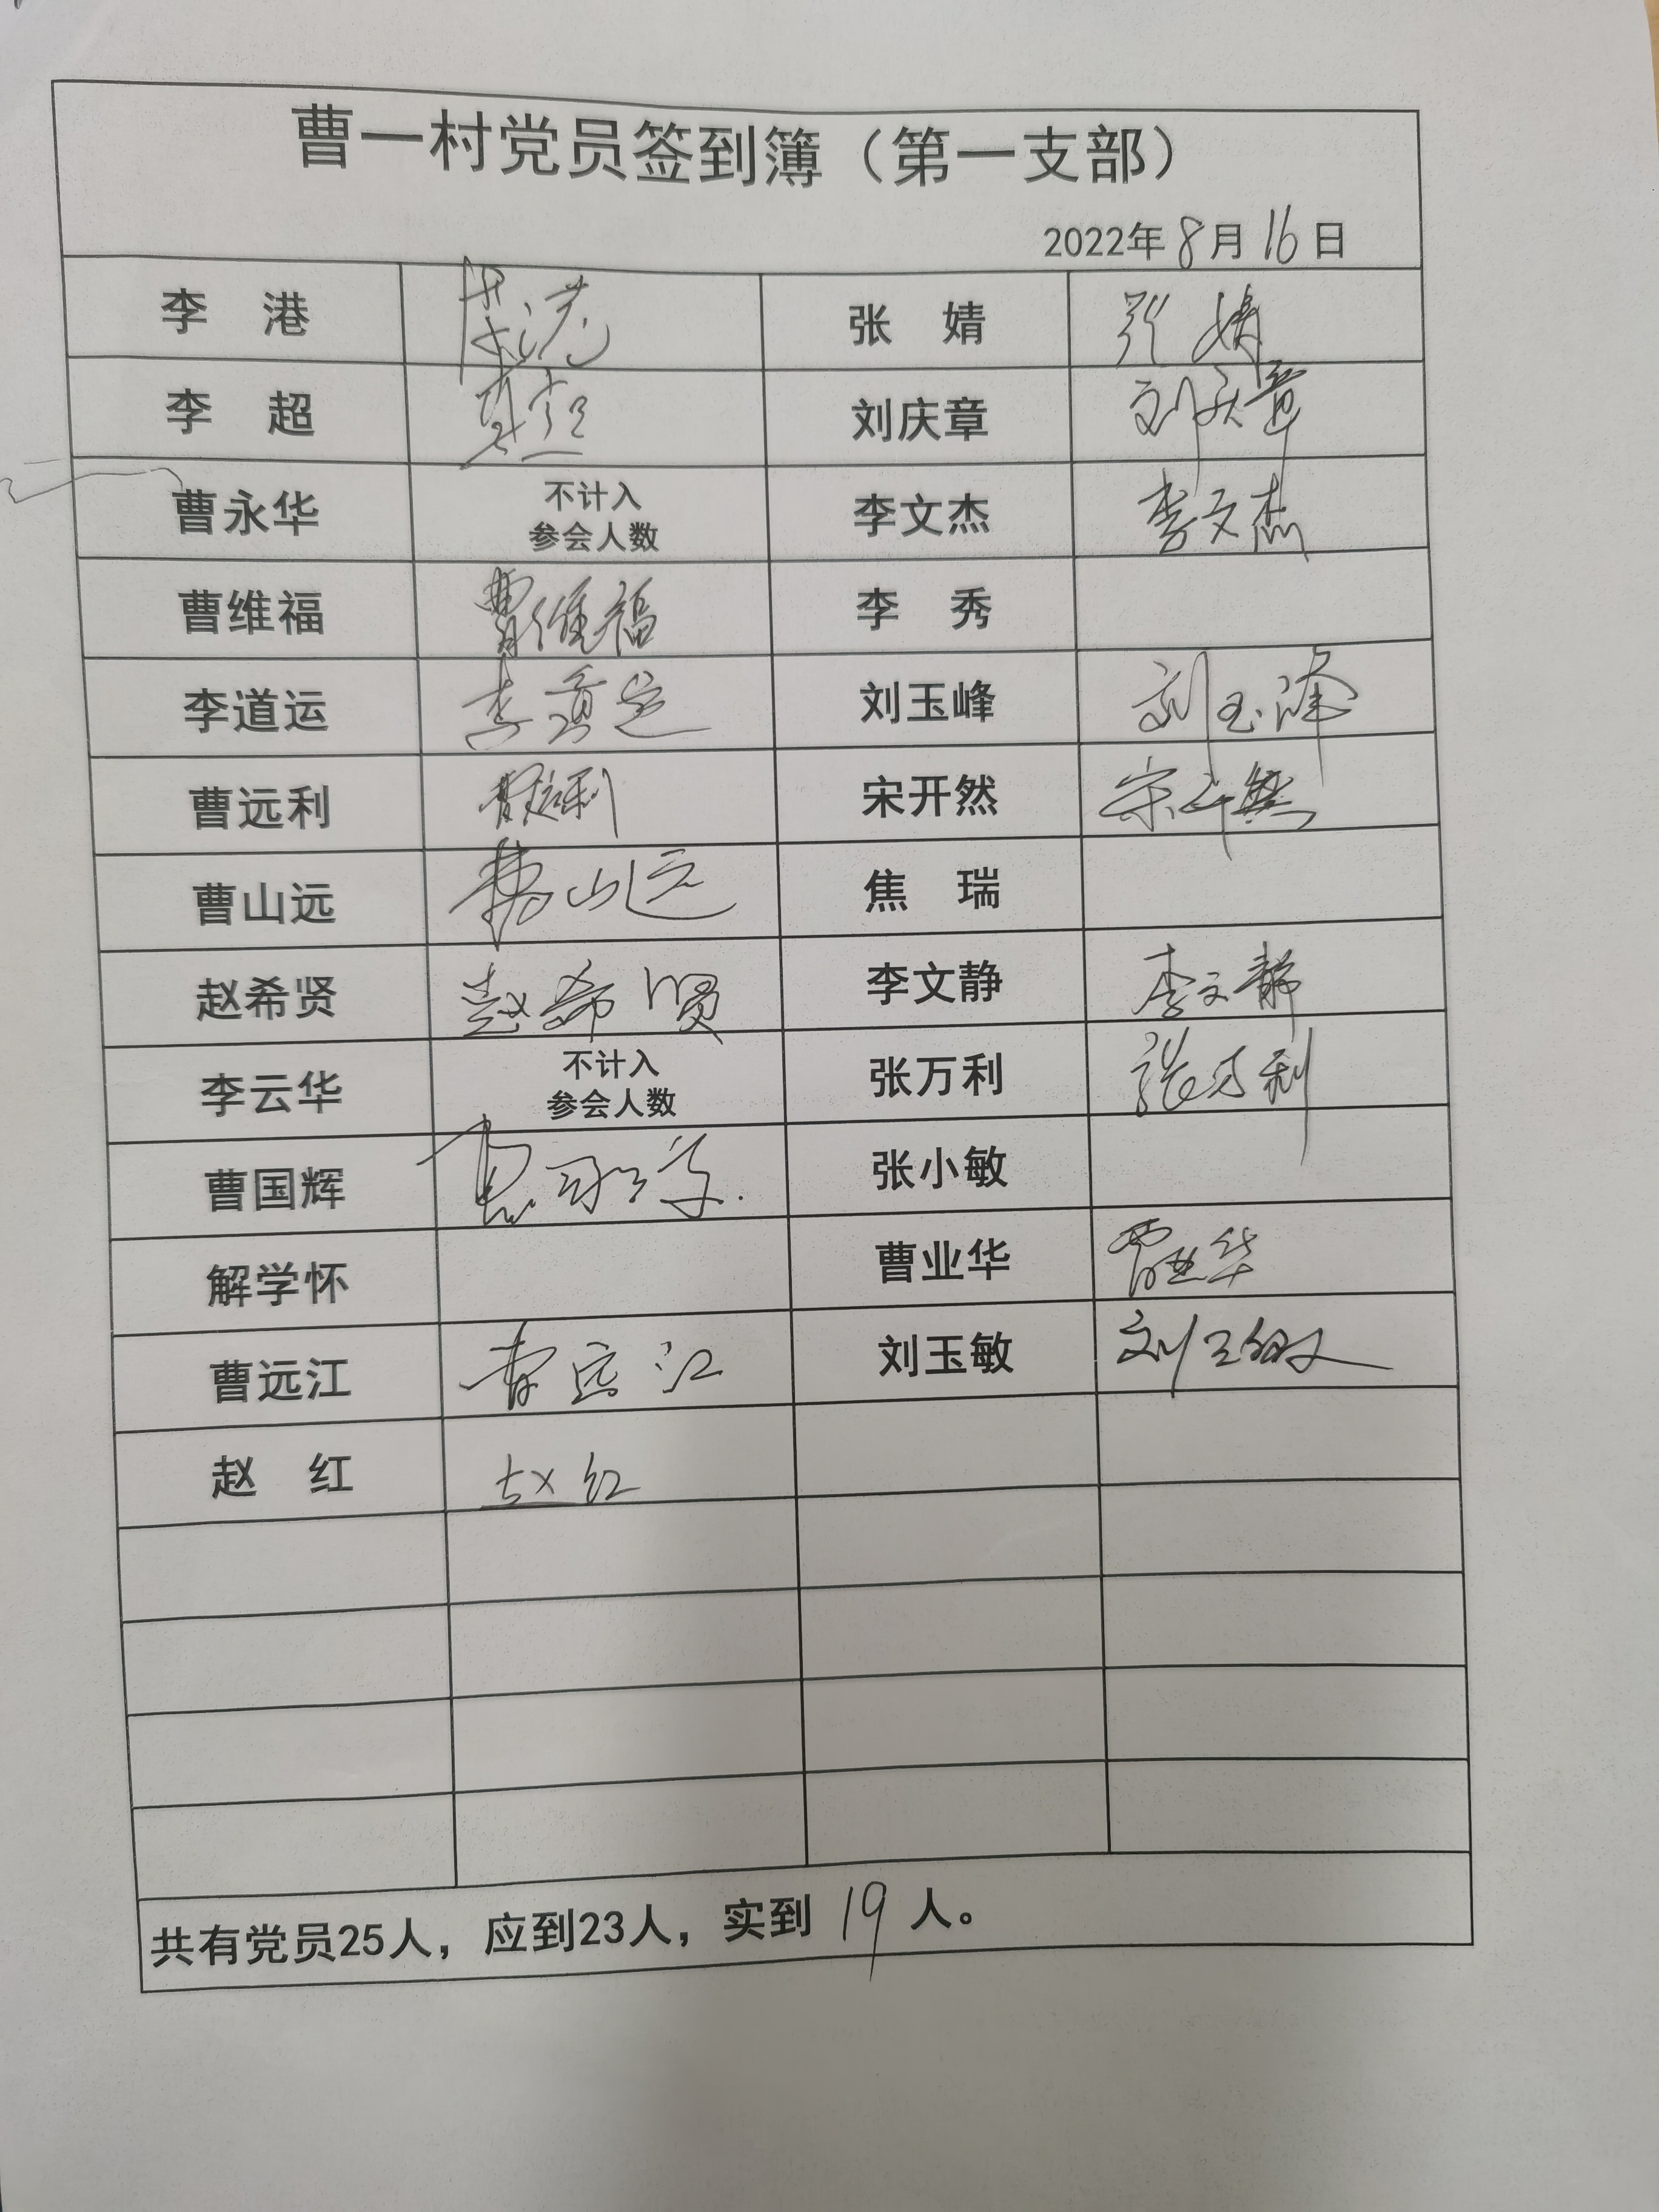 曹一村党员签到簿（第一支部）
2022年8月16日
李 港 李港 张 婧 张婧
李 超 李超 刘庆章 刘庆章
曹永华 不计入 参会人数 李文杰 李文杰
曹维福 曹维福 李 秀
李道运 李道运 刘玉峰 刘玉峰
曹远利 曹远利 宋开然 宋开然
曹山远 曹山远 焦 瑞
赵希贤 赵希贤 李文静 李文静
李云华 不计入 参会人数 张万利 张万利
曹国辉 张小敏
解学怀 曹业华 曹业华
曹远江 曹远江 刘玉敏 刘玉敏
赵 红 赵红
共有党员25人，应到23人，实到 19 人。